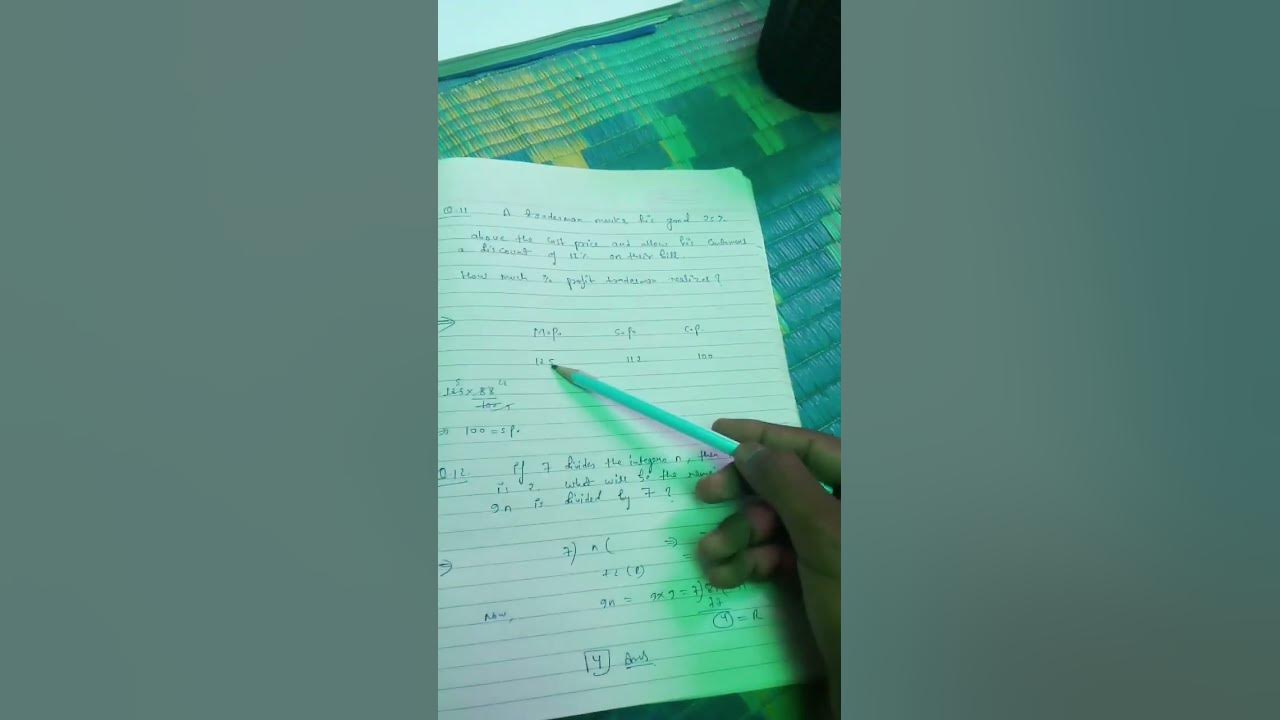 Q.11 A tradesman marks his good 25%
above the cost price and allow his customers
a discount of 12% on their bill.
How much % profit tradesman realizes?
M.p. S.p. C.p.
125 112 100
125 × 88
100
⇒ 100 = S p.
Q.12. If 7 divides the integer n, then
is 2. what will be the
9n is divided by 7?
7) n (
+2 (R)
Now, 9n =
77
4 = R
4 Ans